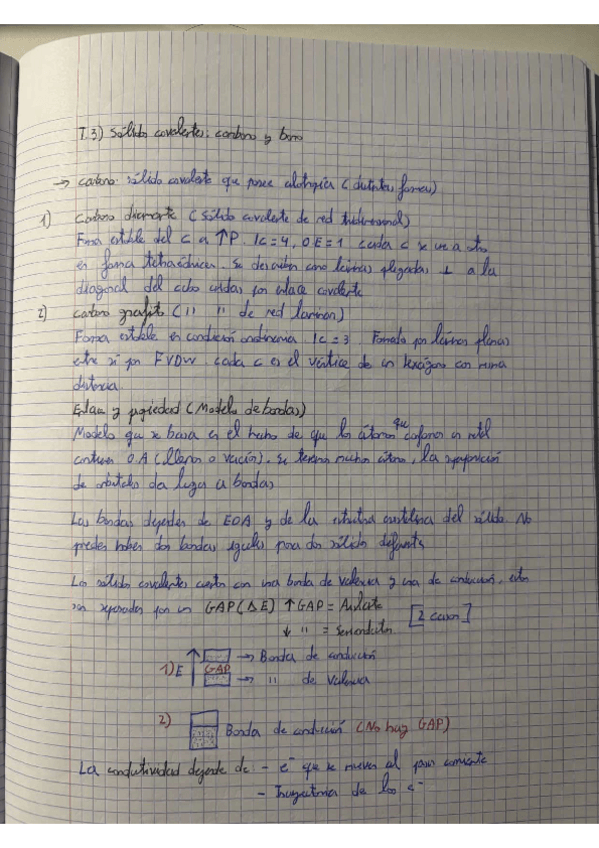 T.3) Sólidos covalentes: carbono y boro
→ carbono: sólido covalente que posee alotropía (distintas formas)
1) Carbono diamante (Sólido covalente de red tridimensional)
Forma estable del C a ↑P. Ic=4, OE=1 cada C se une a otro
en forma tetraédrica. Se describen como láminas plegadas ⊥ a la
diagonal del cubo unidas por enlace covalente
2) carbono grafito ( " " de red laminar)
Forma estable en condición ordinaria Ic=3. Formado por láminas planas
entre sí por FVDW. cada C es el vértice de un hexágono con misma
distancia.
Enlace y propiedad (Modelo de bandas)
Modelo que se basa en el hecho de que los átomos que conforman un metal
contienen OA (llenos o vacíos). Se tienen muchos átomos, la superposición
de orbitales da lugar a bandas
Las bandas dependen de EOA y de la estructura cristalina del sólido. No
pueden haber dos bandas iguales para dos sólidos diferentes
Los sólidos covalentes cuentan con una banda de valencia y una de conducción, estas
son separadas por un GAP(ΔE) ↑GAP = Aislante
↓ " = Semiconductor
[2 casos]
1) E ↑ GAP → Banda de conducción
→ " de valencia
2) Banda de conducción (No hay GAP)
La conductividad depende de: - e⁻ que se mueven al paso corriente
- Trayectoria de los e⁻